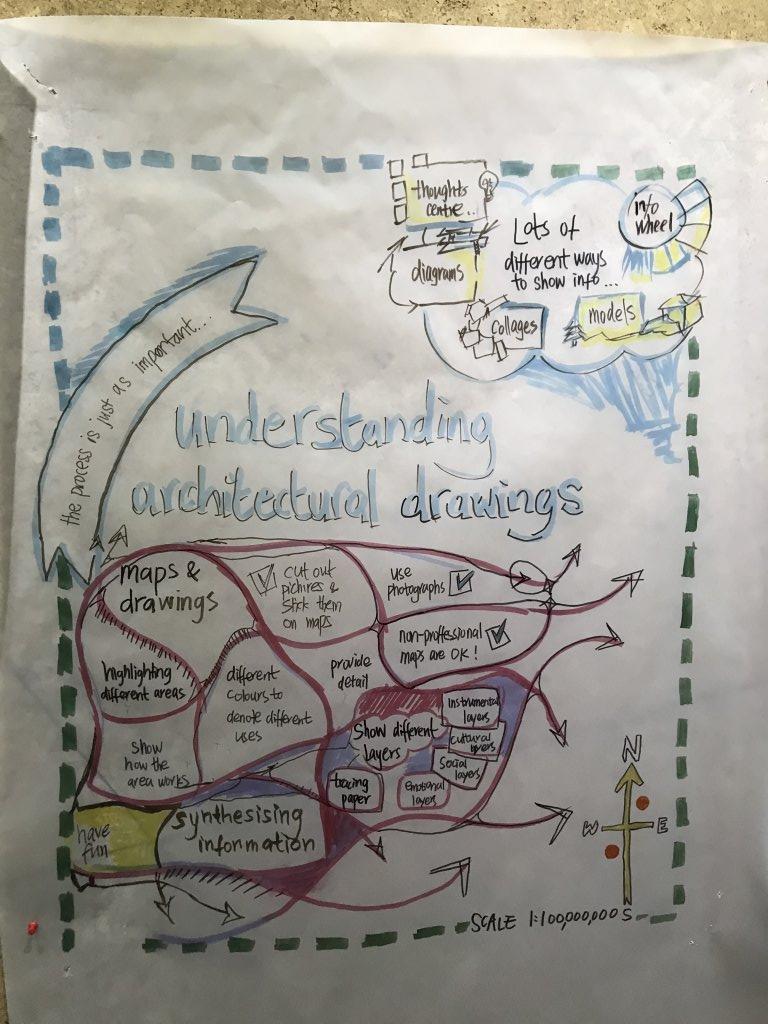 thoughts
centre...
diagrams
Lots of
different ways
to show info...
info
wheel
collages
models
the process is just as important...
understanding
architectural drawings
maps &
drawings
cut out
pichires &
stick them
on maps
use
photographs
non-proffessional
maps are OK!
highlighting
different areas
different
colours to
denote different
uses
provide
detail
show
how the
area works
Show different
layers
instrumental
layers
cultural
layers
Social
layers
Emotional
layers
tracing
paper
have
fun
synthesising
information
N
W
E
S
SCALE 1:100,000,000